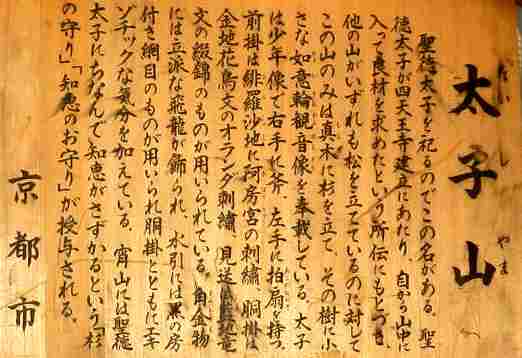 太子山
たいしやま
聖徳太子を祀るのでこの名がある。聖
徳太子が四天王寺建立にあたり、自から山中に
入って良材を求めたという所伝にもとづき、
他の山がいずれも松を立てているのに対して
この山のみは真木に杉を立て、その樹に小
さな如意輪観音像を奉載している。太子
は少年像で右手に斧、左手に拍扇を持つ。
前掛は緋羅紗地に阿房宮の刺繍、胴掛は
金地花鳥文のオランダ刺繍、見送は 竜
文の綴錦のものが用いられている。角金物
には立派な飛龍が飾られ、水引には黒の房
付き網目のものが用いられ胴掛とともにエキ
ゾチックな気分を加えている。宵山には聖徳
太子にちなんで知恵がさずかるという「杉
の守り」「知恵のお守り」が授与される。
京都市